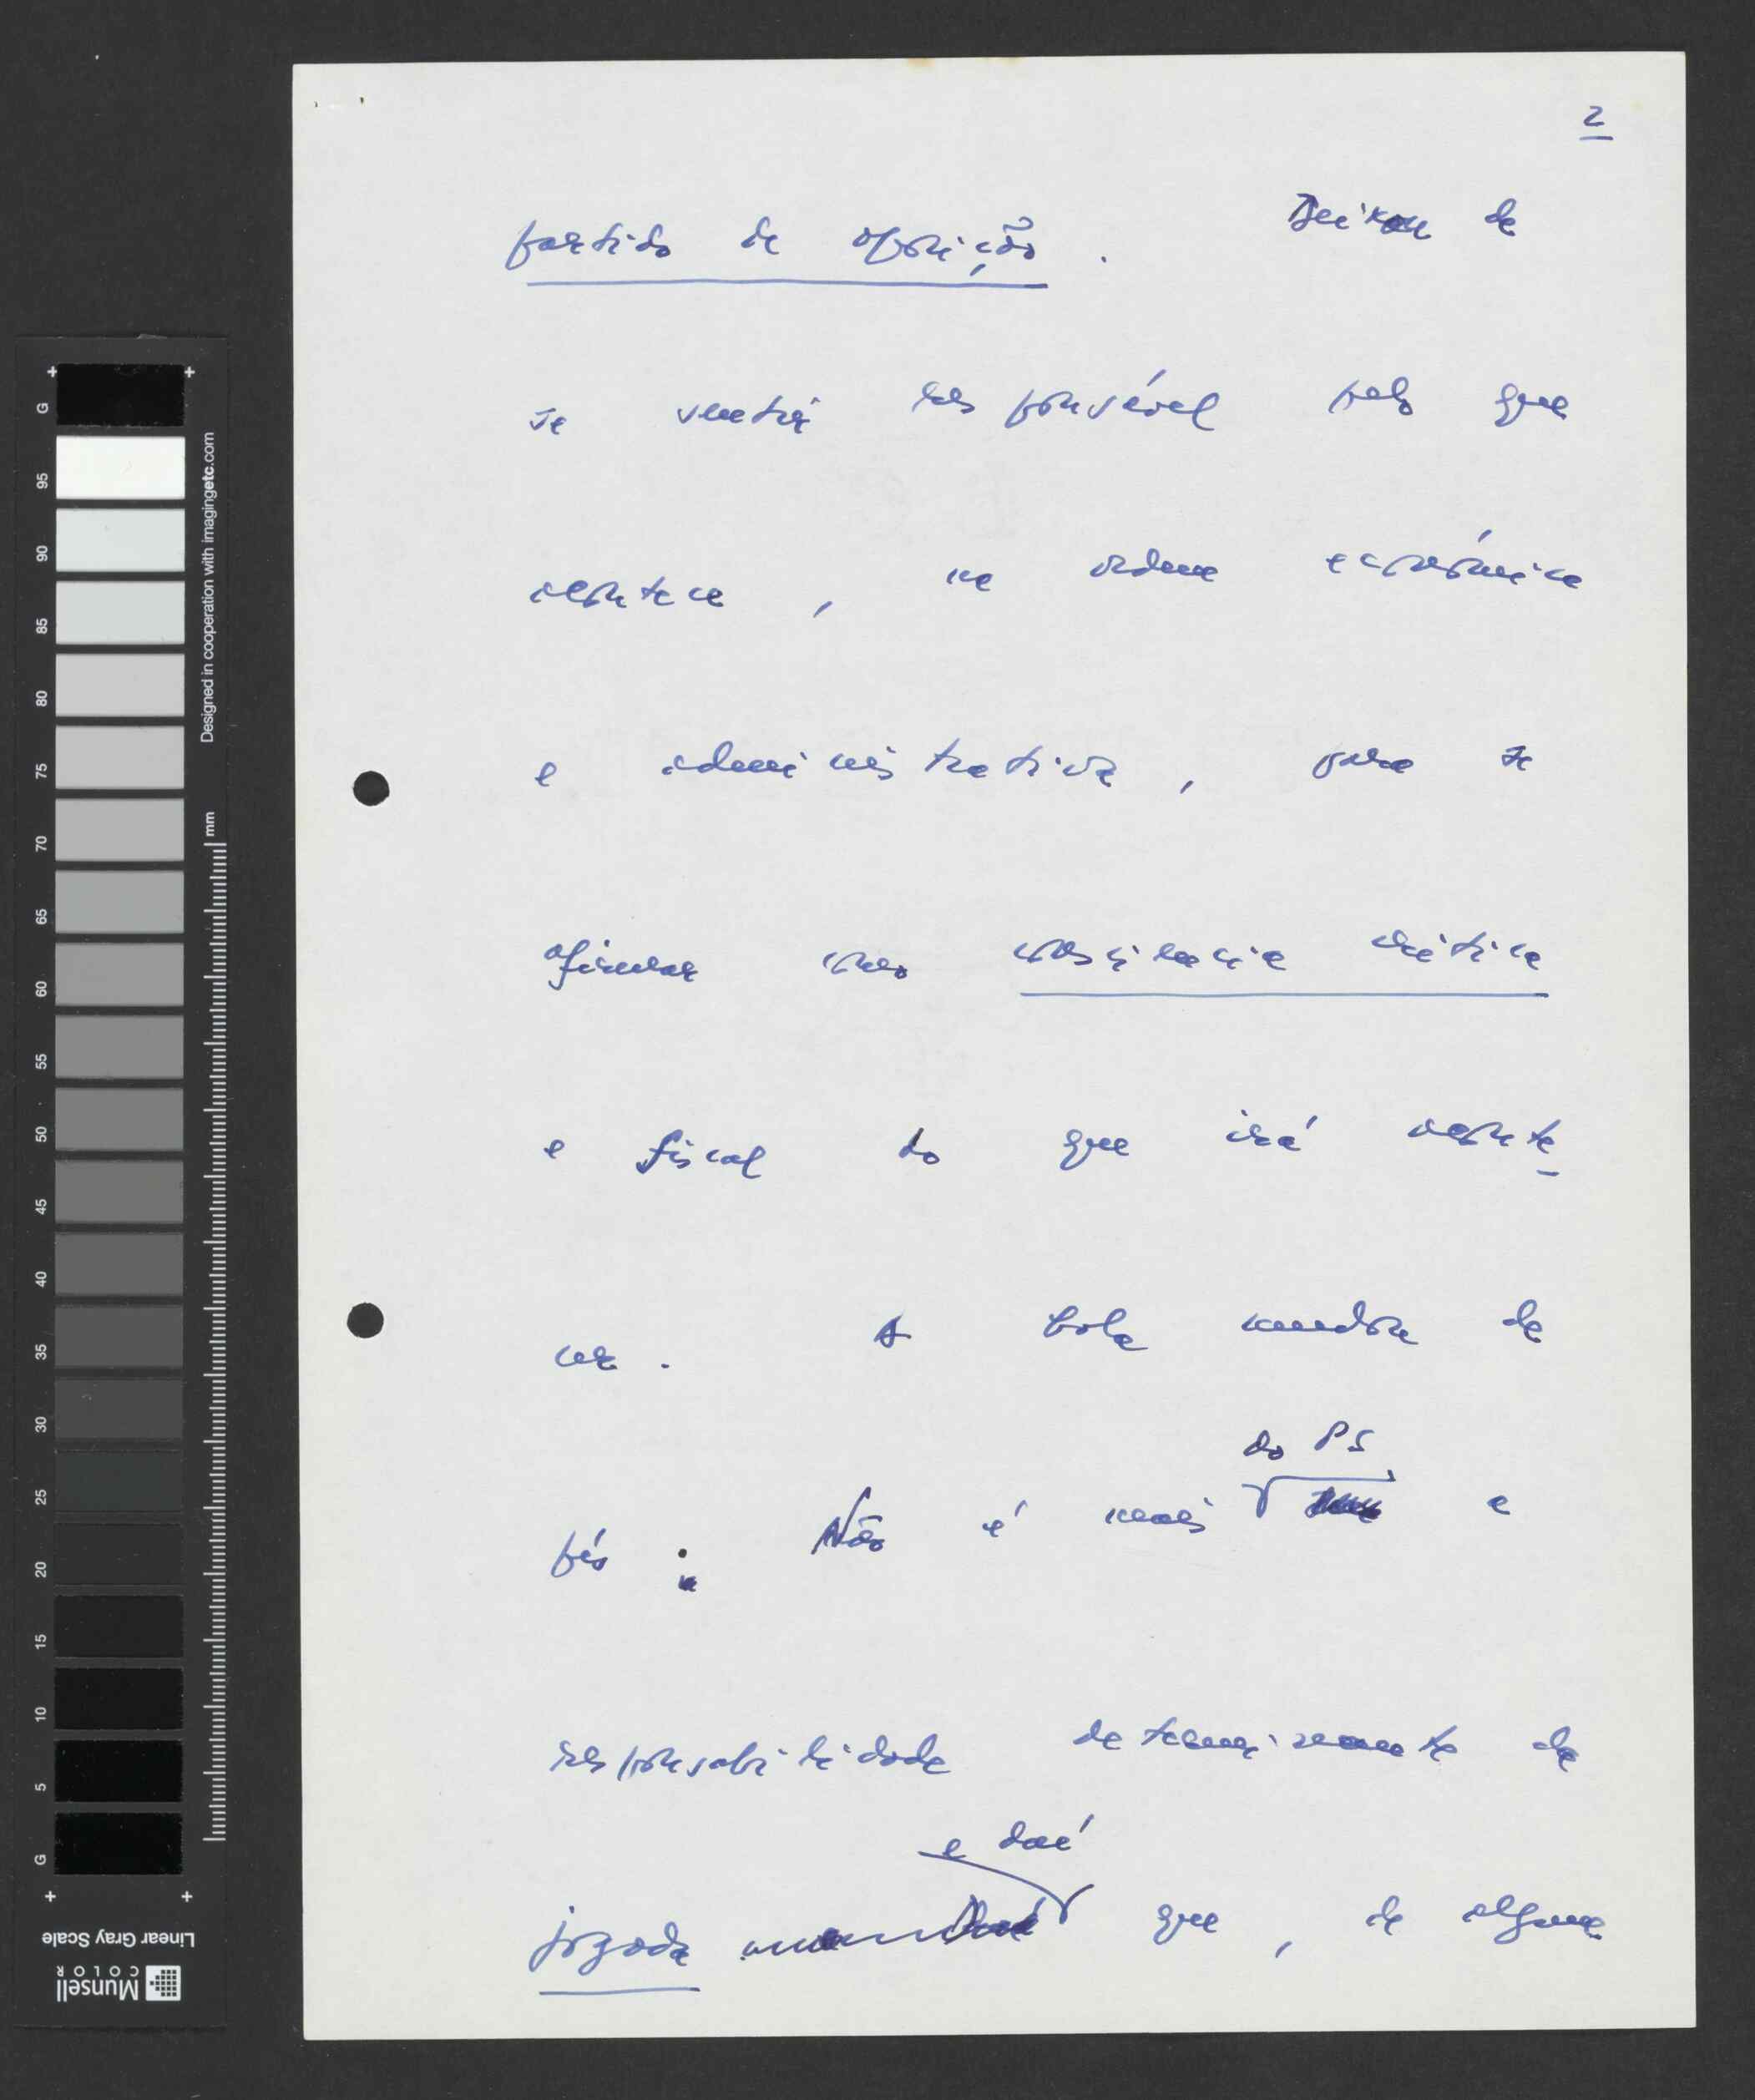 2
partido de oposição. Deixou de
se sentir responsável pelo que
acontece, na ordem económica
e administrativa, para se
afirmar como consciência crítica
e fiscal do que irá aconte-
cer. A bola mudou de
do PS
pés: Não é mais e
responsabilidade determinante da
e daí
jogada que, de alguma
G 95 90 85 80 75 70 65 60 55 50 45 40 35 30 25 20 15 10 5 G
Designed in cooperation with imagingetc.com
mm
Linear Gray Scale
Munsell
COLOR